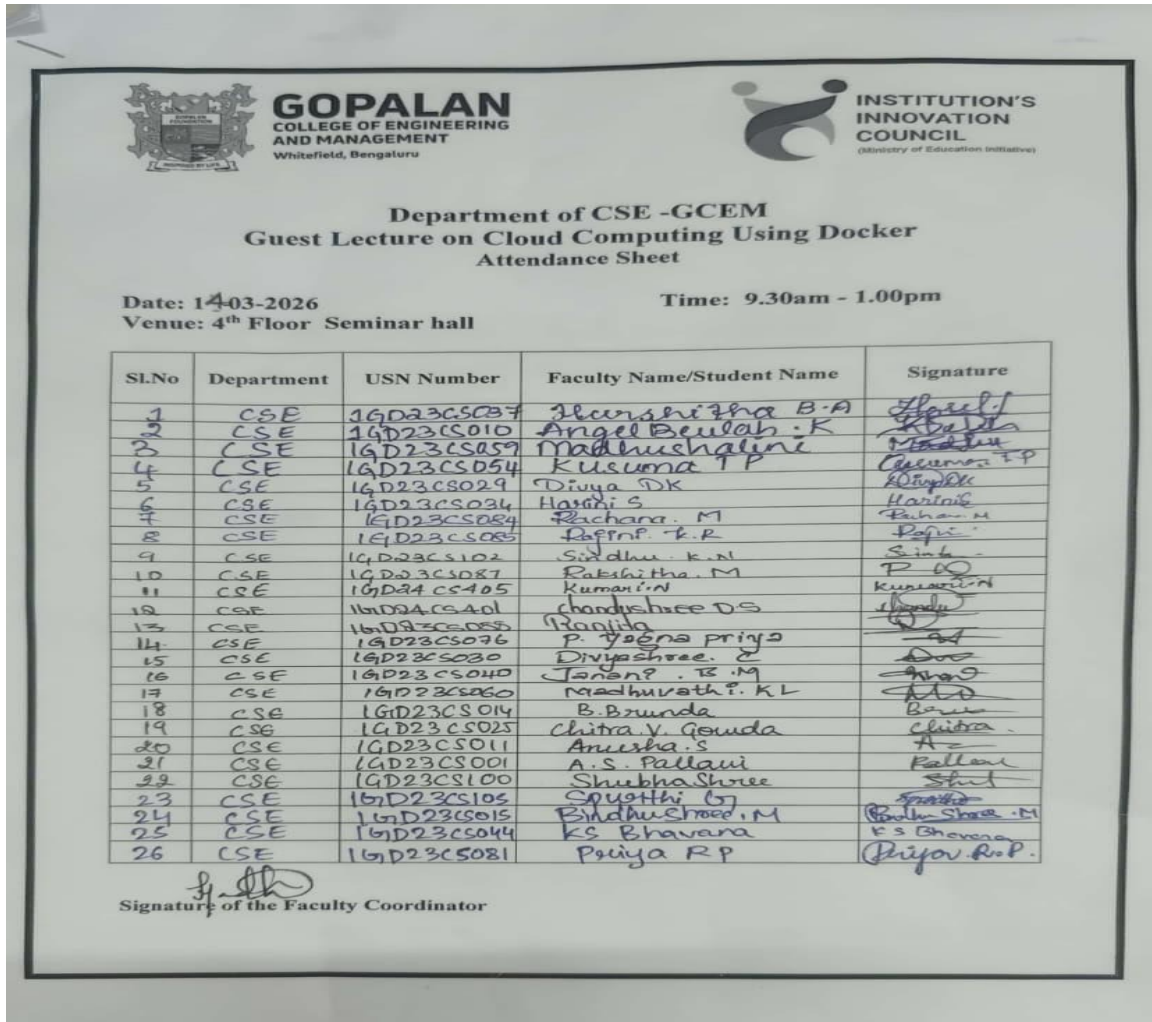 GOPALAN FOUNDATION
INSPIRED BY LIFE
GOPALAN
COLLEGE OF ENGINEERING
AND MANAGEMENT
Whitefield, Bengaluru
INSTITUTION'S
INNOVATION
COUNCIL
(Ministry of Education Initiative)
Department of CSE -GCEM
Guest Lecture on Cloud Computing Using Docker
Attendance Sheet
Date: 14-03-2026 Time: 9.30am - 1.00pm
Venue: 4th Floor Seminar hall
Sl.No Department USN Number Faculty Name/Student Name Signature
1 CSE 1GD23CS037 Harshitha B.A
2 CSE 1GD23CS010 Angel Beulah .K
3 CSE 1GD23CS059 Madhushalini
4 CSE 1GD23CS054 Kusuma T P Kusuma T P
5 CSE 1GD23CS029 Divya DK Divya DK
6 CSE 1GD23CS034 Harini S Harini S
7 CSE 1GD23CS084 Rachana. M
8 CSE 1GD23CS085 Ragini. K.R
9 CSE 1GD23CS102 Sindhu. K.N
10 CSE 1GD23CS087 Rakshitha. M
11 CSE 1GD24CS405 Kumari.N Kumari.N
12 CSE 1GD24CS401 Chandushree DS
13 CSE Ranjita
14. CSE 1GD23CS076 P. Yagna priya
15 CSE 1GD23CS030 Divyashree. C
16 CSE 1GD23CS040 Janani . B .M
17 CSE 1GD23CS060 Madhuvathi. KL
18 CSE 1GD23CS014 B.Brunda
19 CSE 1GD23CS025 Chitra.V. Gowda Chitra
20 CSE 1GD23CS011 Anusha.S
21 CSE 1GD23CS001 A.S. Pallavi Pallavi
22 CSE 1GD23CS100 ShubhaShree
23 CSE 1GD23CS105 Spurthi G
24 CSE 1GD23CS015 BindhuShree.M Bindhu Shree .M
25 CSE 1GD23CS044 KS Bhavana K S Bhavana
26 CSE 1GD23CS081 Priya RP Priya R.P.
Signature of the Faculty Coordinator